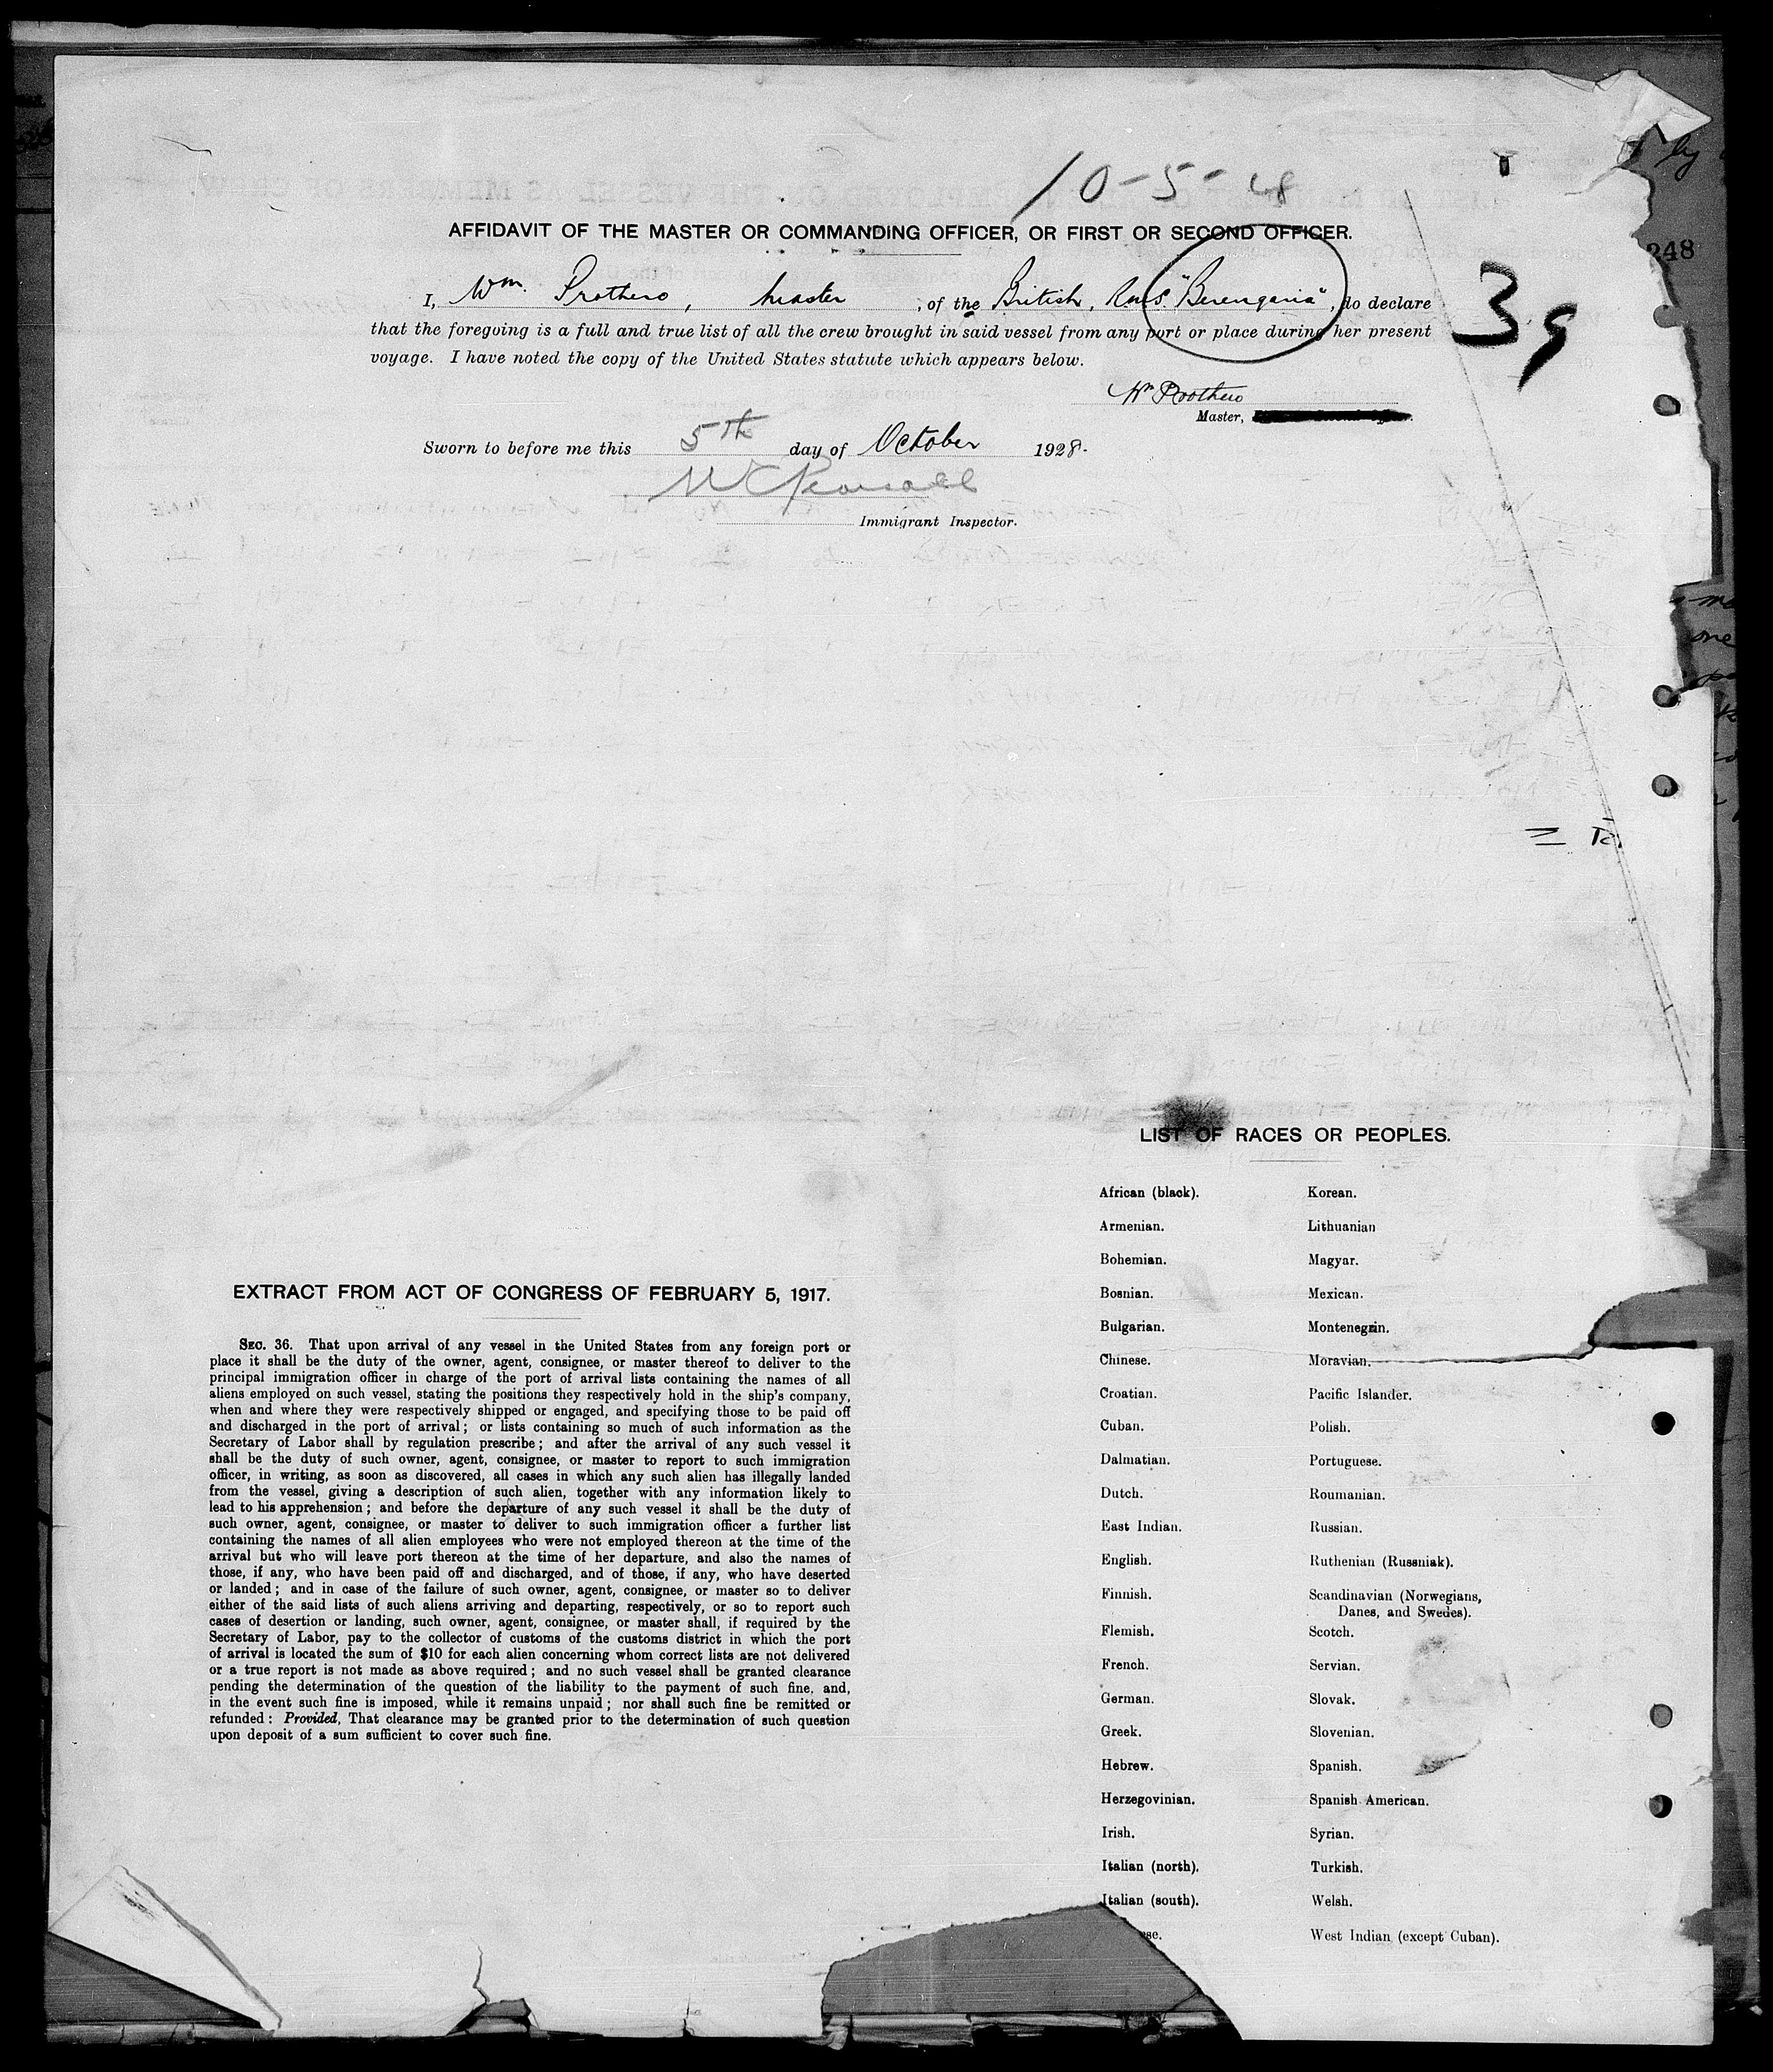 10-5-28
AFFIDAVIT OF THE MASTER OR COMMANDING OFFICER, OR FIRST OR SECOND OFFICER.
248
39
I, Wm. Prothero, Master, of the British, R.M.S. "Berengaria", do declare
that the foregoing is a full and true list of all the crew brought in said vessel from any port or place during her present
voyage. I have noted the copy of the United States statute which appears below.
Wm Prothero
Master,
Sworn to before me this 5th day of October 1928.
Immigrant Inspector.
LIST OF RACES OR PEOPLES.
African (black). Korean.
Armenian. Lithuanian
Bohemian. Magyar.
Bosnian. Mexican.
Bulgarian. Montenegrin.
Chinese. Moravian.
Croatian. Pacific Islander.
Cuban. Polish.
Dalmatian. Portuguese.
Dutch. Roumanian.
East Indian. Russian.
English. Ruthenian (Russniak).
Finnish. Scandinavian (Norwegians,
Danes, and Swedes).
Flemish. Scotch.
French. Servian.
German. Slovak.
Greek. Slovenian.
Hebrew. Spanish.
Herzegovinian. Spanish American.
Irish. Syrian.
Italian (north). Turkish.
Italian (south). Welsh.
West Indian (except Cuban).
EXTRACT FROM ACT OF CONGRESS OF FEBRUARY 5, 1917.
SEC. 36. That upon arrival of any vessel in the United States from any foreign port or
place it shall be the duty of the owner, agent, consignee, or master thereof to deliver to the
principal immigration officer in charge of the port of arrival lists containing the names of all
aliens employed on such vessel, stating the positions they respectively hold in the ship's company,
when and where they were respectively shipped or engaged, and specifying those to be paid off
and discharged in the port of arrival; or lists containing so much of such information as the
Secretary of Labor shall by regulation prescribe; and after the arrival of any such vessel it
shall be the duty of such owner, agent, consignee, or master to report to such immigration
officer, in writing, as soon as discovered, all cases in which any such alien has illegally landed
from the vessel, giving a description of such alien, together with any information likely to
lead to his apprehension; and before the departure of any such vessel it shall be the duty of
such owner, agent, consignee, or master to deliver to such immigration officer a further list
containing the names of all alien employees who were not employed thereon at the time of the
arrival but who will leave port thereon at the time of her departure, and also the names of
those, if any, who have been paid off and discharged, and of those, if any, who have deserted
or landed; and in case of the failure of such owner, agent, consignee, or master so to deliver
either of the said lists of such aliens arriving and departing, respectively, or so to report such
cases of desertion or landing, such owner, agent, consignee, or master shall, if required by the
Secretary of Labor, pay to the collector of customs of the customs district in which the port
of arrival is located the sum of $10 for each alien concerning whom correct lists are not delivered
or a true report is not made as above required; and no such vessel shall be granted clearance
pending the determination of the question of the liability to the payment of such fine, and,
in the event such fine is imposed, while it remains unpaid; nor shall such fine be remitted or
refunded: Provided, That clearance may be granted prior to the determination of such question
upon deposit of a sum sufficient to cover such fine.